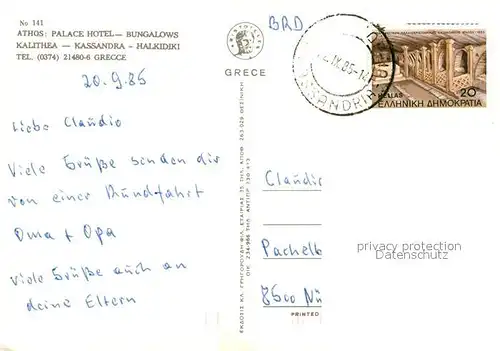 No 141
ATHOS: PALACE HOTEL— BUNGALOWS
KALITHEA — KASSANDRA - HALKIDIKI
TEL. (0374) 21480-6 GRECCE
20.9.85
Liebe Claudio
Viele Grüße senden dir
von einer Rundfahrt
Oma + Opa
Viele Grüße auch an
deine Eltern
GRECE
BRD
.IX.85-14
ASSANDRIA
HELLAS
20
ΕΛΛΗΝΙΚΗ ΔΗΜΟΚΡΑΤΙΑ
Claudi
Pachelb
8500 Nü
PRINTED
privacy protection
Datenschutz